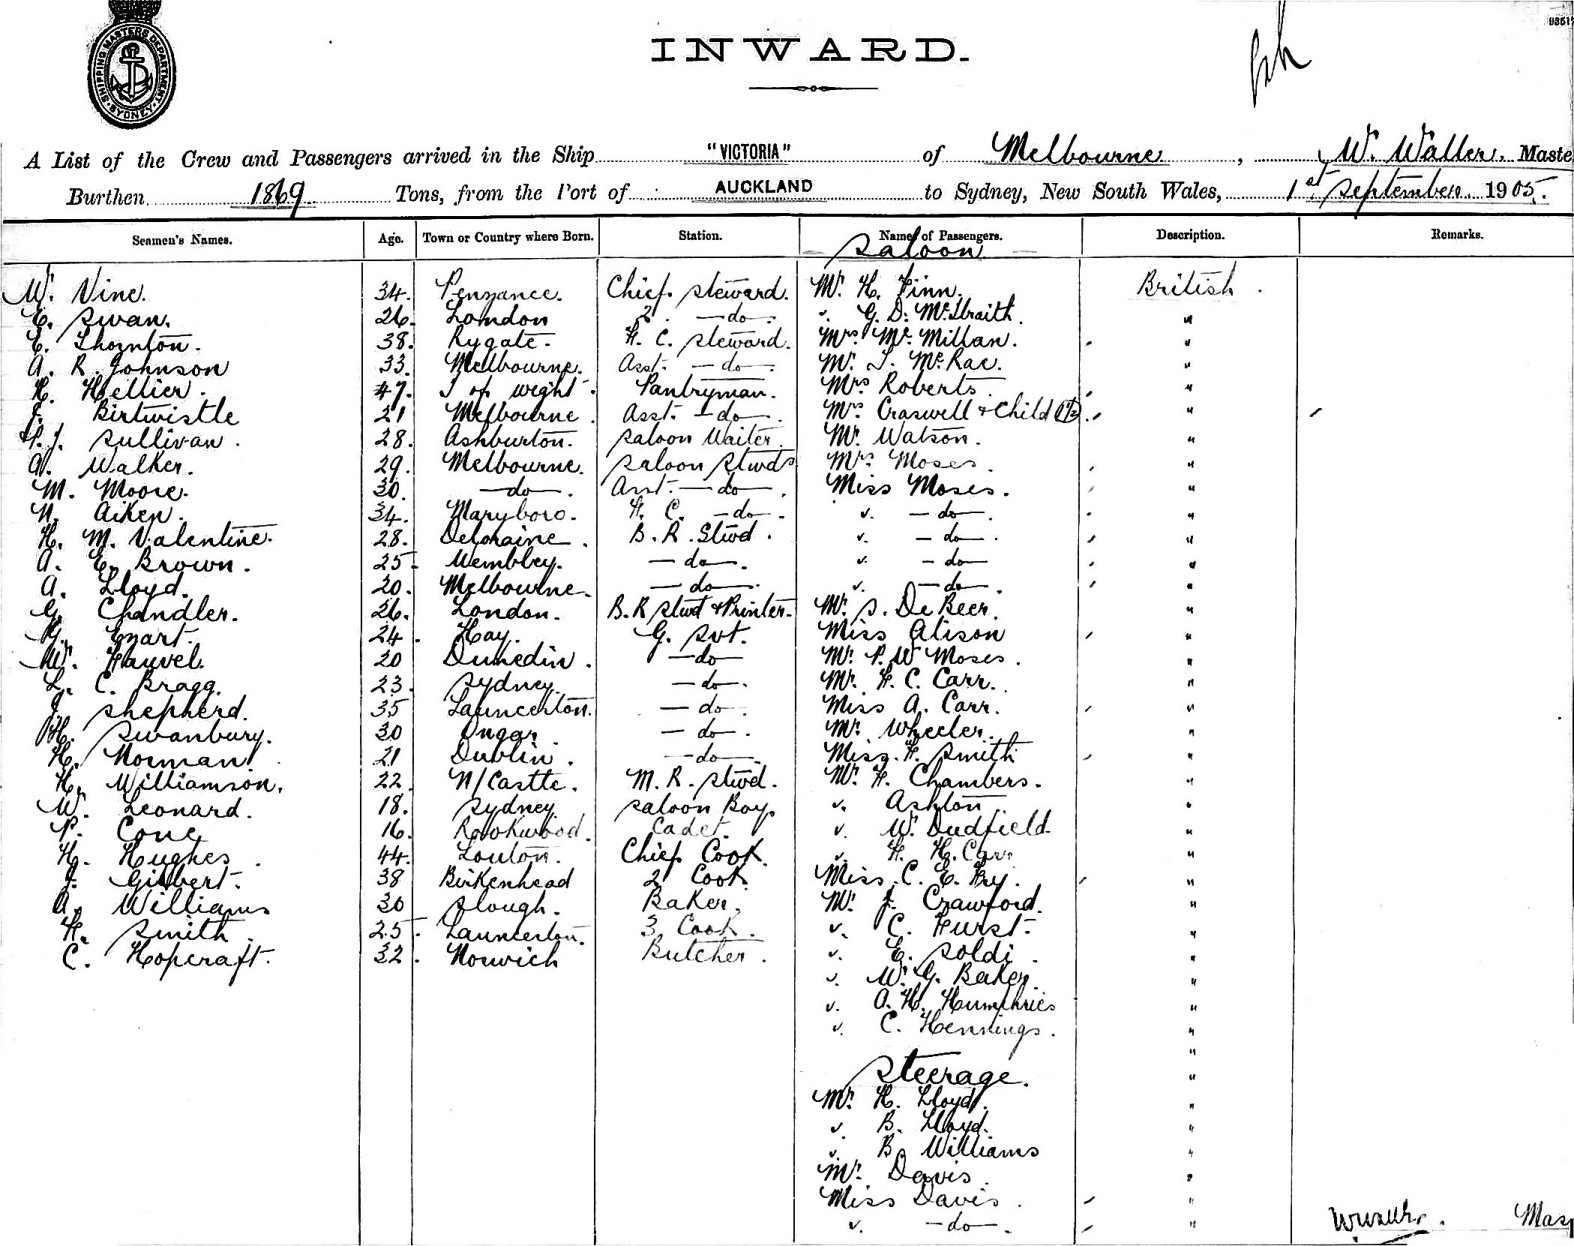 SHIPPING MASTERS DEPARTMENT SYDNEY
INWARD.
A List of the Crew and Passengers arrived in the Ship "VICTORIA" of Melbourne, W. Waller, Maste
Burthen 1869 Tons, from the Port of AUCKLAND to Sydney, New South Wales, 1st September 1905.
Seamen's Names. Age. Town or Country where Born. Station. Names of Passengers. Description. Remarks.
Saloon
W. Vine. 34. Penzance. Chief Steward. Mr. H. Finn. British.
E. Swan. 26. London 2. —do— " G. D. McIlraith. "
E. Thornton. 38. Rygate. F. C. Steward. Mrs McMillan. "
A. R. Johnson 33. Melbourne. Asst. —do— Mr. T. McRae. "
H. Hellier. 47. I of Wight. Pantryman. Mrs Roberts. "
J. Birtwistle 21 Melbourne. Asst. —do— Mrs Craswell & Child "
P. J. Sullivan. 28. Ashburton. Saloon Waiter. Mr. Watson. "
A. Walker. 29. Melbourne. Saloon Stwds Mrs Moses. "
M. Moore. 30. —do—. Asst. —do—. Miss Moses. "
N. Aiken. 34. Maryboro. F. C. —do—. " —do—. "
H. M. Valentine. 28. Deloraine. B. R. Stwd. " —do—. "
A. E. Brown. 25. Wembley. —do—. " —do— "
A. Lloyd. 20. Melbourne. —do— " —do—. "
G. Chandler. 26. London. B. R Stwd & Printer. Mr. S. De Beer. "
G. Ezart. 24. Hay. G. Svt. Miss Alison "
W. Hauvel. 20 Dunedin. —do— Mr. P. W Moses. "
L. C. Bragg. 23. Sydney. —do—. Mr. F. C. Carr. "
J. Shepherd. 35 Launceston. —do—. Miss A. Carr. "
H. Swanbury. 30 Ongar —do—. Mr. Wheeler. "
H. Norman. 21 Dublin. —do—. Miss. F. Smith "
H. Williamson. 22. N/Castle. M. R. Stwd. Mr. F. Chambers. "
W. Leonard. 18. Sydney Saloon Boy. " Ashton "
P. Cone 16. Rookwood. Cadet. " W. Dudfield. "
H. Hughes. 44. Louton. Chief Cook. " F. H. Carr "
J. Gilbert. 38 Birkenhead 2 Cook. Miss. C. E. Fry. "
A. Williams 30 Slough. Baker. Mr. J. Crawford. "
H. Smith 25. Launceston. 3 Cook. " C. Hurst. "
C. Hopcraft. 32. Norwich Butcher. " E. Soldi. "
" W. G. Baker. "
" A. H. Humphries "
" C. Hennings. "
"
Steerage. "
Mr. H. Lloyd. "
" B. Lloyd. "
" B. Williams "
Mr. Davis. "
Miss Davis. "
" —do—. " Mas